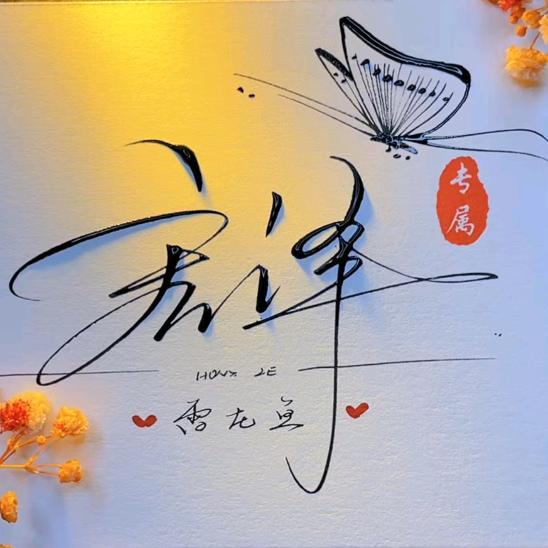 专属
宏泽
HONG ZE
雪龙鱼